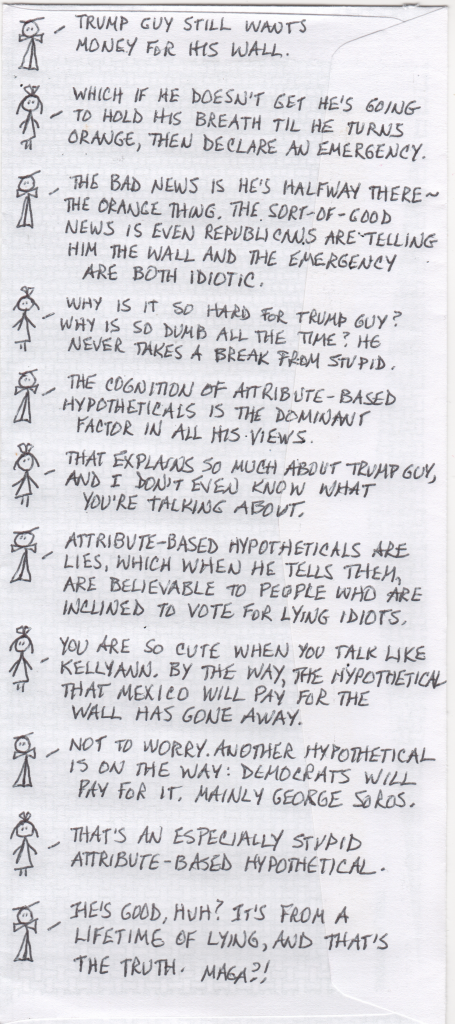 TRUMP GUY STILL WANTS
MONEY FOR HIS WALL.
WHICH IF HE DOESN'T GET HE'S GOING
TO HOLD HIS BREATH TIL HE TURNS
ORANGE, THEN DECLARE AN EMERGENCY.
THE BAD NEWS IS HE'S HALFWAY THERE~
THE ORANGE THING. THE SORT-OF-GOOD
NEWS IS EVEN REPUBLICANS ARE TELLING
HIM THE WALL AND THE EMERGENCY
ARE BOTH IDIOTIC.
WHY IS IT SO HARD FOR TRUMP GUY?
WHY IS SO DUMB ALL THE TIME? HE
NEVER TAKES A BREAK FROM STUPID.
THE COGNITION OF ATTRIBUTE-BASED
HYPOTHETICALS IS THE DOMINANT
FACTOR IN ALL HIS VIEWS.
THAT EXPLAINS SO MUCH ABOUT TRUMP GUY,
AND I DON'T EVEN KNOW WHAT
YOU'RE TALKING ABOUT.
ATTRIBUTE-BASED HYPOTHETICALS ARE
LIES, WHICH WHEN HE TELLS THEM,
ARE BELIEVABLE TO PEOPLE WHO ARE
INCLINED TO VOTE FOR LYING IDIOTS.
YOU ARE SO CUTE WHEN YOU TALK LIKE
KELLYANN. BY THE WAY, THE HYPOTHETICAL
THAT MEXICO WILL PAY FOR THE
WALL HAS GONE AWAY.
NOT TO WORRY. ANOTHER HYPOTHETICAL
IS ON THE WAY: DEMOCRATS WILL
PAY FOR IT. MAINLY GEORGE SOROS.
THAT'S AN ESPECIALLY STUPID
ATTRIBUTE-BASED HYPOTHETICAL.
HE'S GOOD, HUH? IT'S FROM A
LIFETIME OF LYING, AND THAT'S
THE TRUTH. MAGA?!